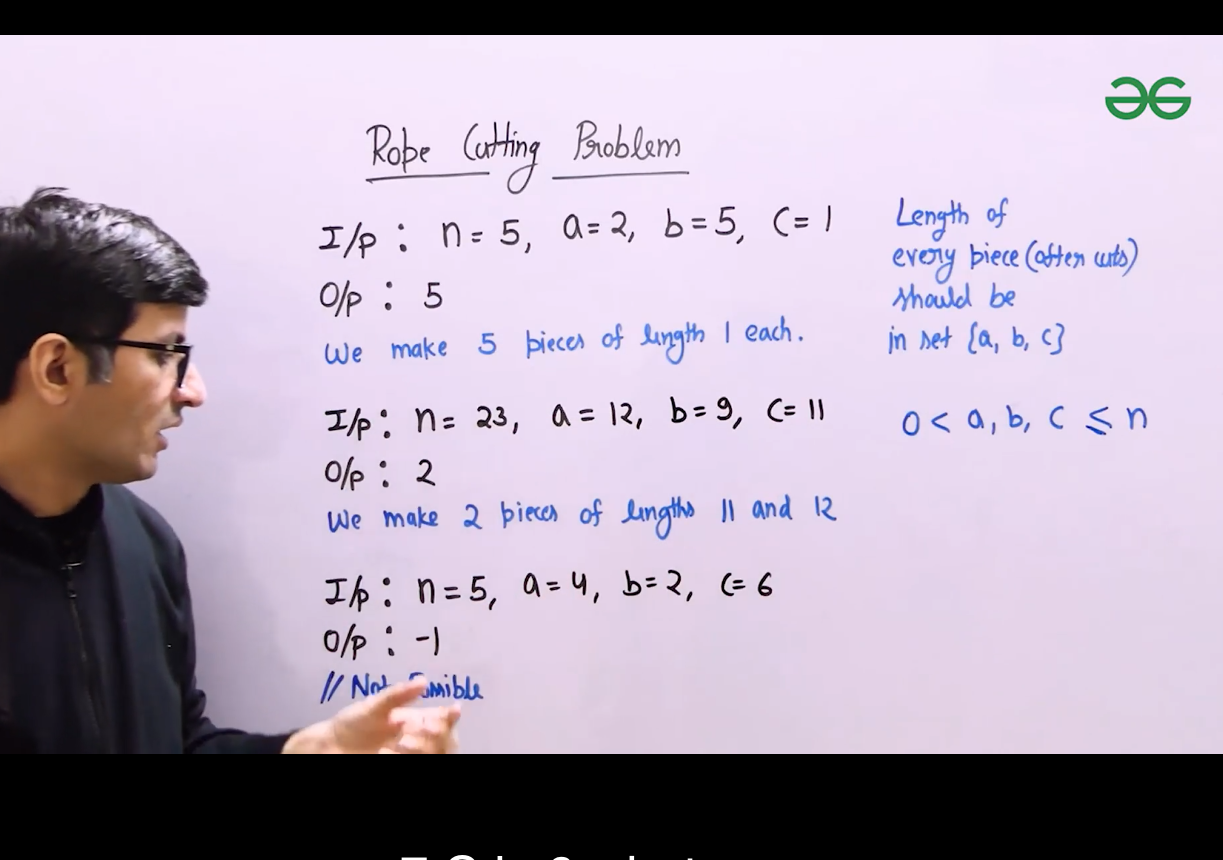 Rope Cutting Problem
I/p : n = 5, a = 2, b = 5, c = 1
O/p : 5
We make 5 pieces of length 1 each.
I/p : n = 23, a = 12, b = 9, c = 11
O/p : 2
We make 2 pieces of lengths 11 and 12
I/p : n = 5, a = 4, b = 2, c = 6
O/p : -1
// Not
Length of
every piece (after cuts)
should be
in set {a, b, c}
0 < a, b, c ≤ n